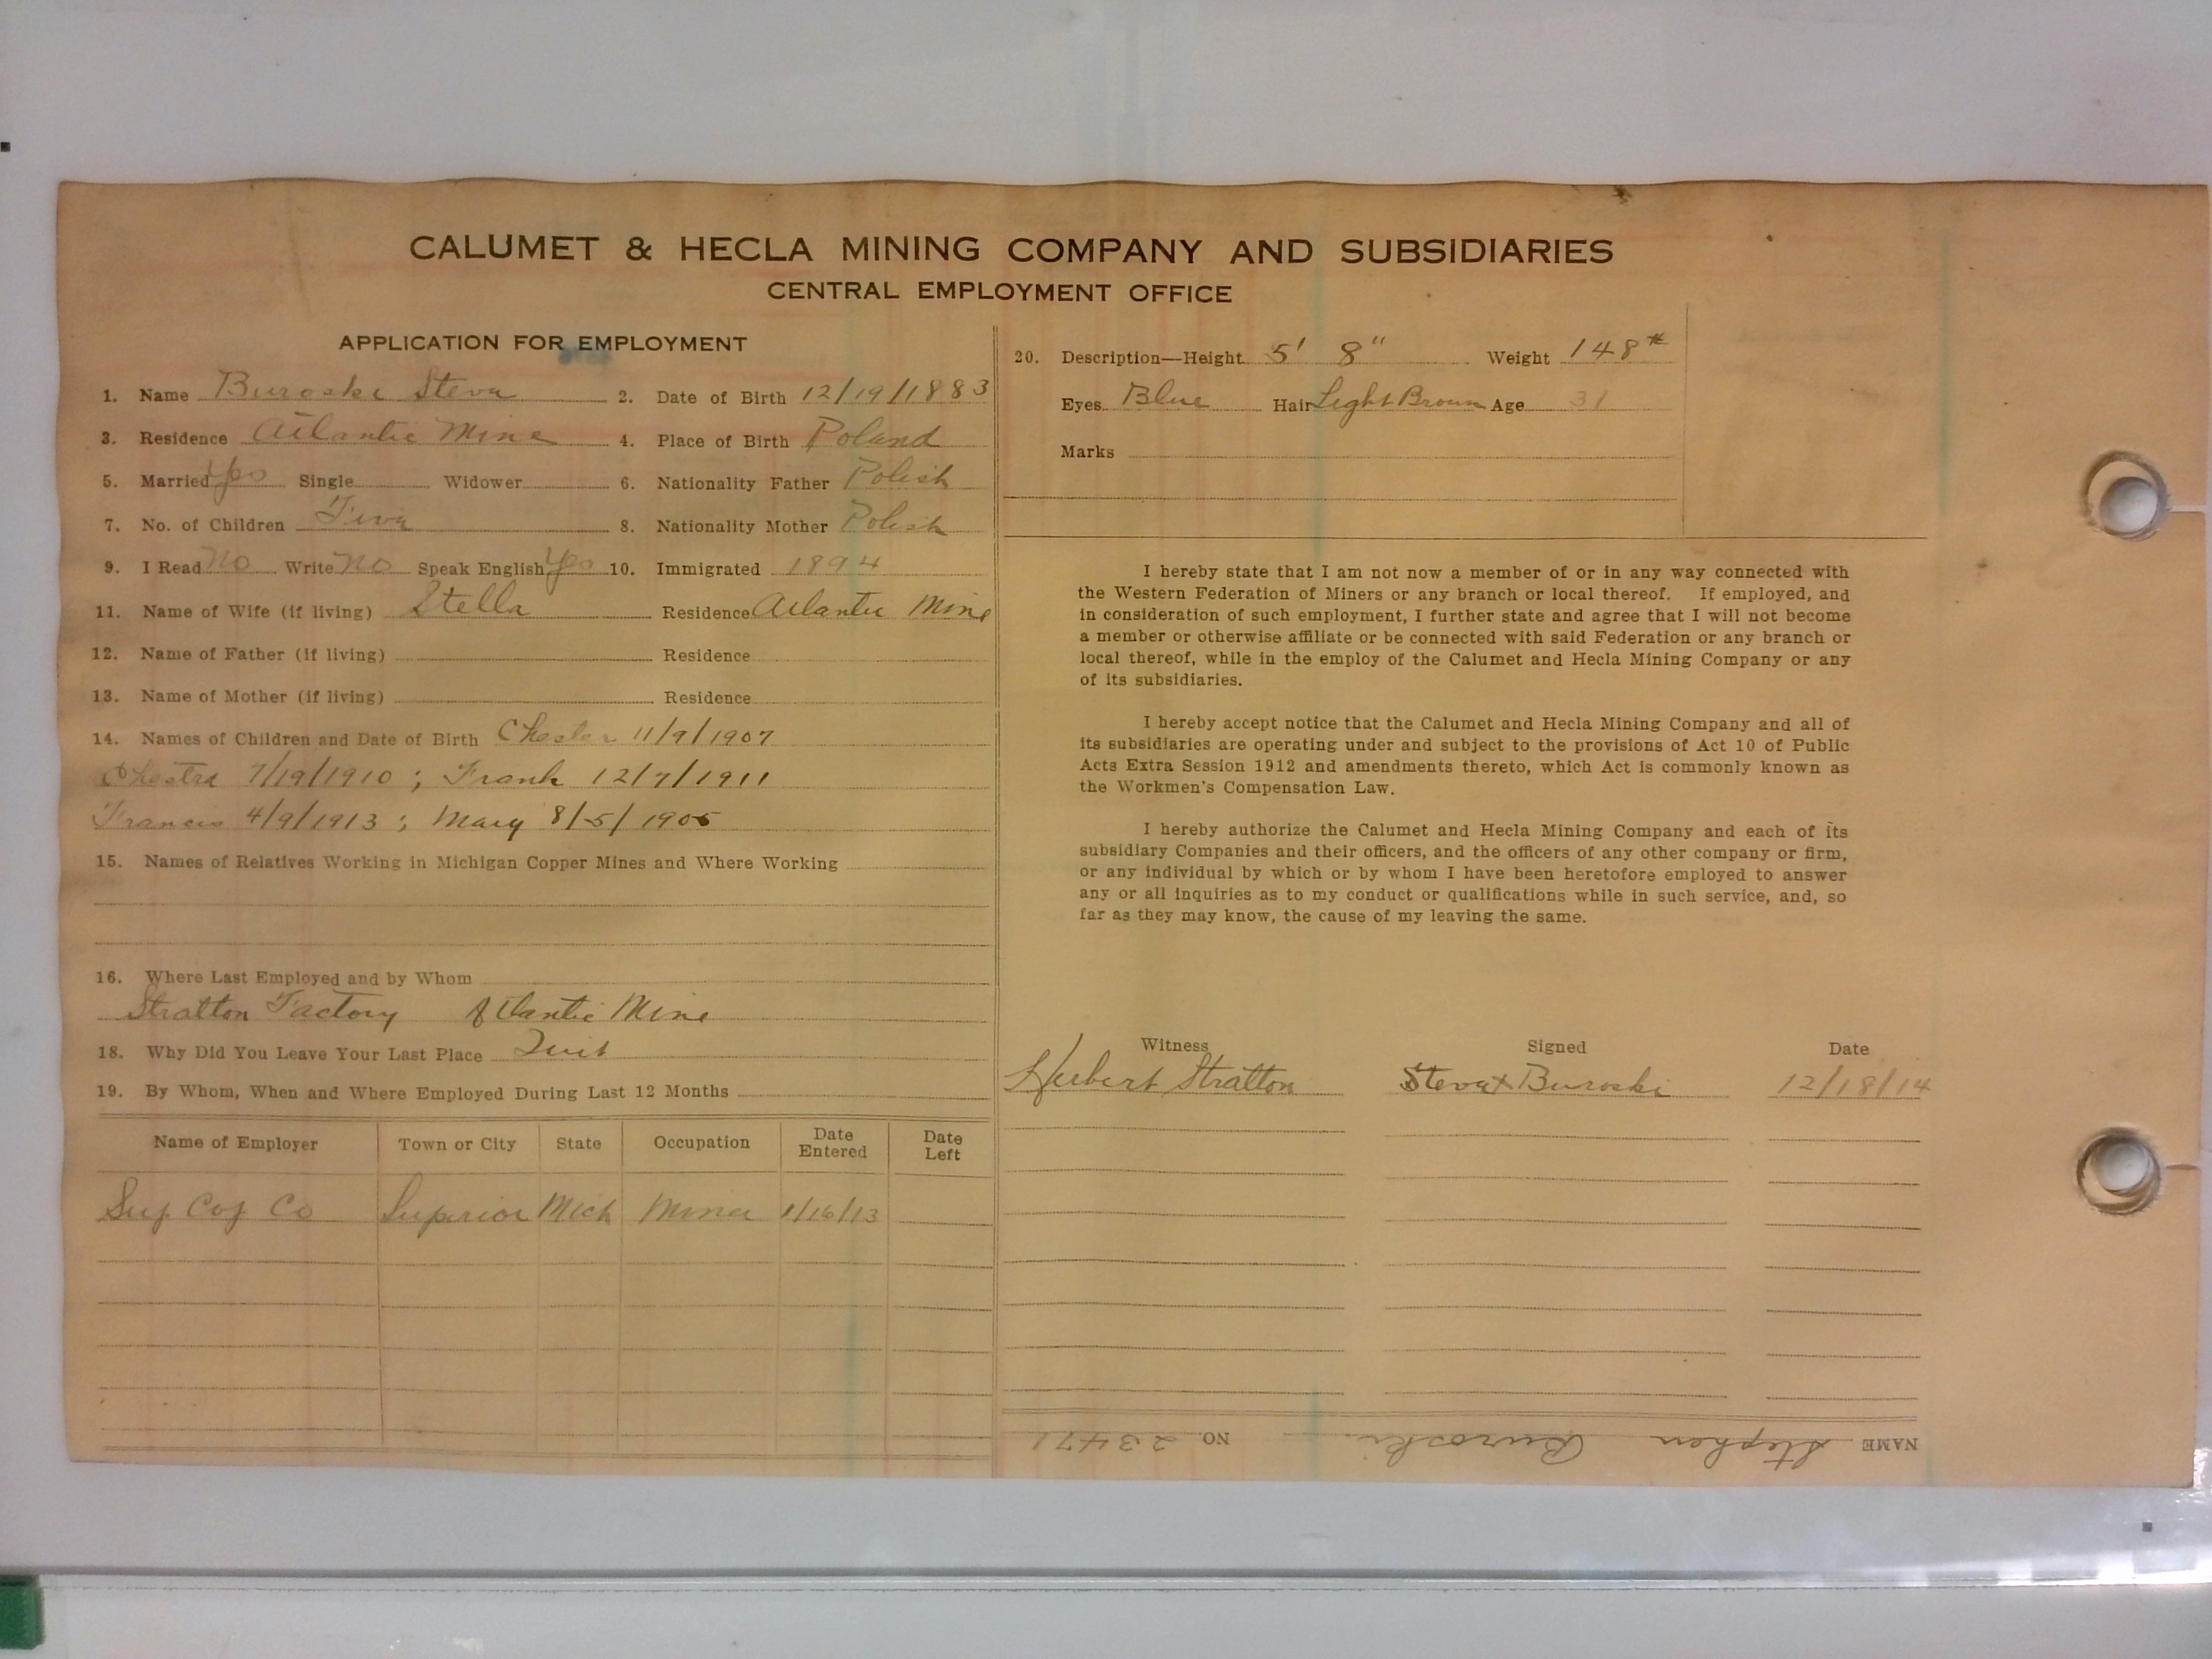 CALUMET & HECLA MINING COMPANY AND SUBSIDIARIES
CENTRAL EMPLOYMENT OFFICE
APPLICATION FOR EMPLOYMENT
1. Name Buroski Steva 2. Date of Birth 12/19/1883
3. Residence Atlantic Mine 4. Place of Birth Poland
5. Married Yes Single Widower 6. Nationality Father Polish
7. No. of Children Five 8. Nationality Mother Polish
9. I Read No Write No Speak English Yes 10. Immigrated 1894
11. Name of Wife (if living) Stella Residence Atlantic Mine
12. Name of Father (if living) Residence
13. Name of Mother (if living) Residence
14. Names of Children and Date of Birth Chester 11/9/1907
7/19/1910 ; Frank 12/7/1911
Francis 4/9/1913 ; Mary 8/5/1905
15. Names of Relatives Working in Michigan Copper Mines and Where Working
16. Where Last Employed and by Whom
Stratton Factory Atlantic Mine
18. Why Did You Leave Your Last Place Quit
19. By Whom, When and Where Employed During Last 12 Months
Name of Employer Town or City State Occupation Date Entered Date Left
Sup Cop Co Superior Mich Miner 1/16/13
20. Description—Height 5' 8" Weight 148#
Eyes Blue Hair Light Brown Age 31
Marks
I hereby state that I am not now a member of or in any way connected with
the Western Federation of Miners or any branch or local thereof. If employed, and
in consideration of such employment, I further state and agree that I will not become
a member or otherwise affiliate or be connected with said Federation or any branch or
local thereof, while in the employ of the Calumet and Hecla Mining Company or any
of its subsidiaries.
I hereby accept notice that the Calumet and Hecla Mining Company and all of
its subsidiaries are operating under and subject to the provisions of Act 10 of Public
Acts Extra Session 1912 and amendments thereto, which Act is commonly known as
the Workmen's Compensation Law.
I hereby authorize the Calumet and Hecla Mining Company and each of its
subsidiary Companies and their officers, and the officers of any other company or firm,
or any individual by which or by whom I have been heretofore employed to answer
any or all inquiries as to my conduct or qualifications while in such service, and, so
far as they may know, the cause of my leaving the same.
Witness Signed Date
Herbert Stratton Steva x Buroski 12/18/14
NAME Stephen Buroski NO. 23471